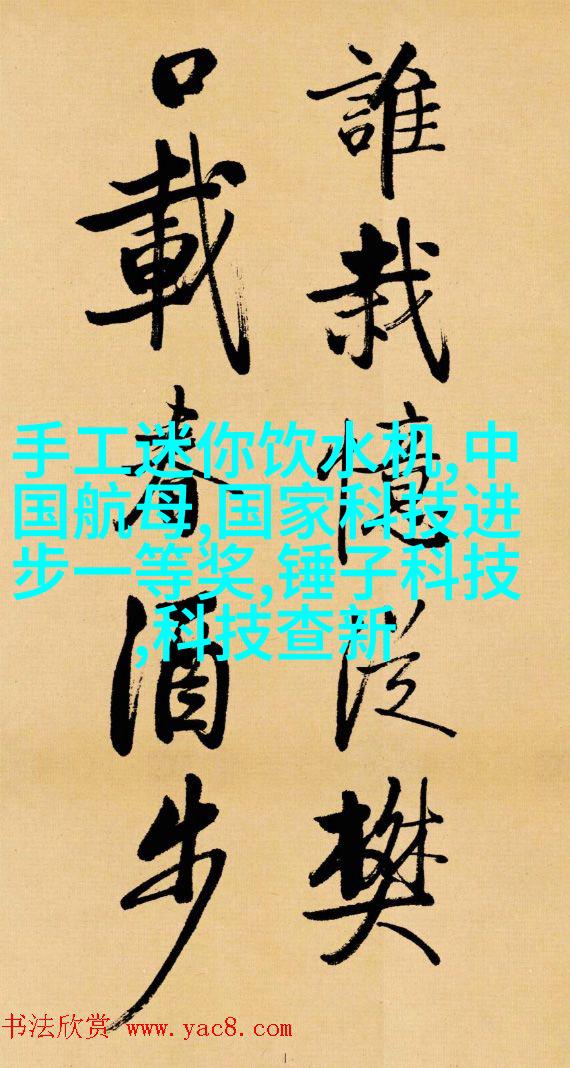 誰栽憶從樊
口載春酒步
手工迷你饮水机,中
国航母,国家科技进
步一等奖,锤子科技
,科技查新
书法欣赏 www.yac8.com